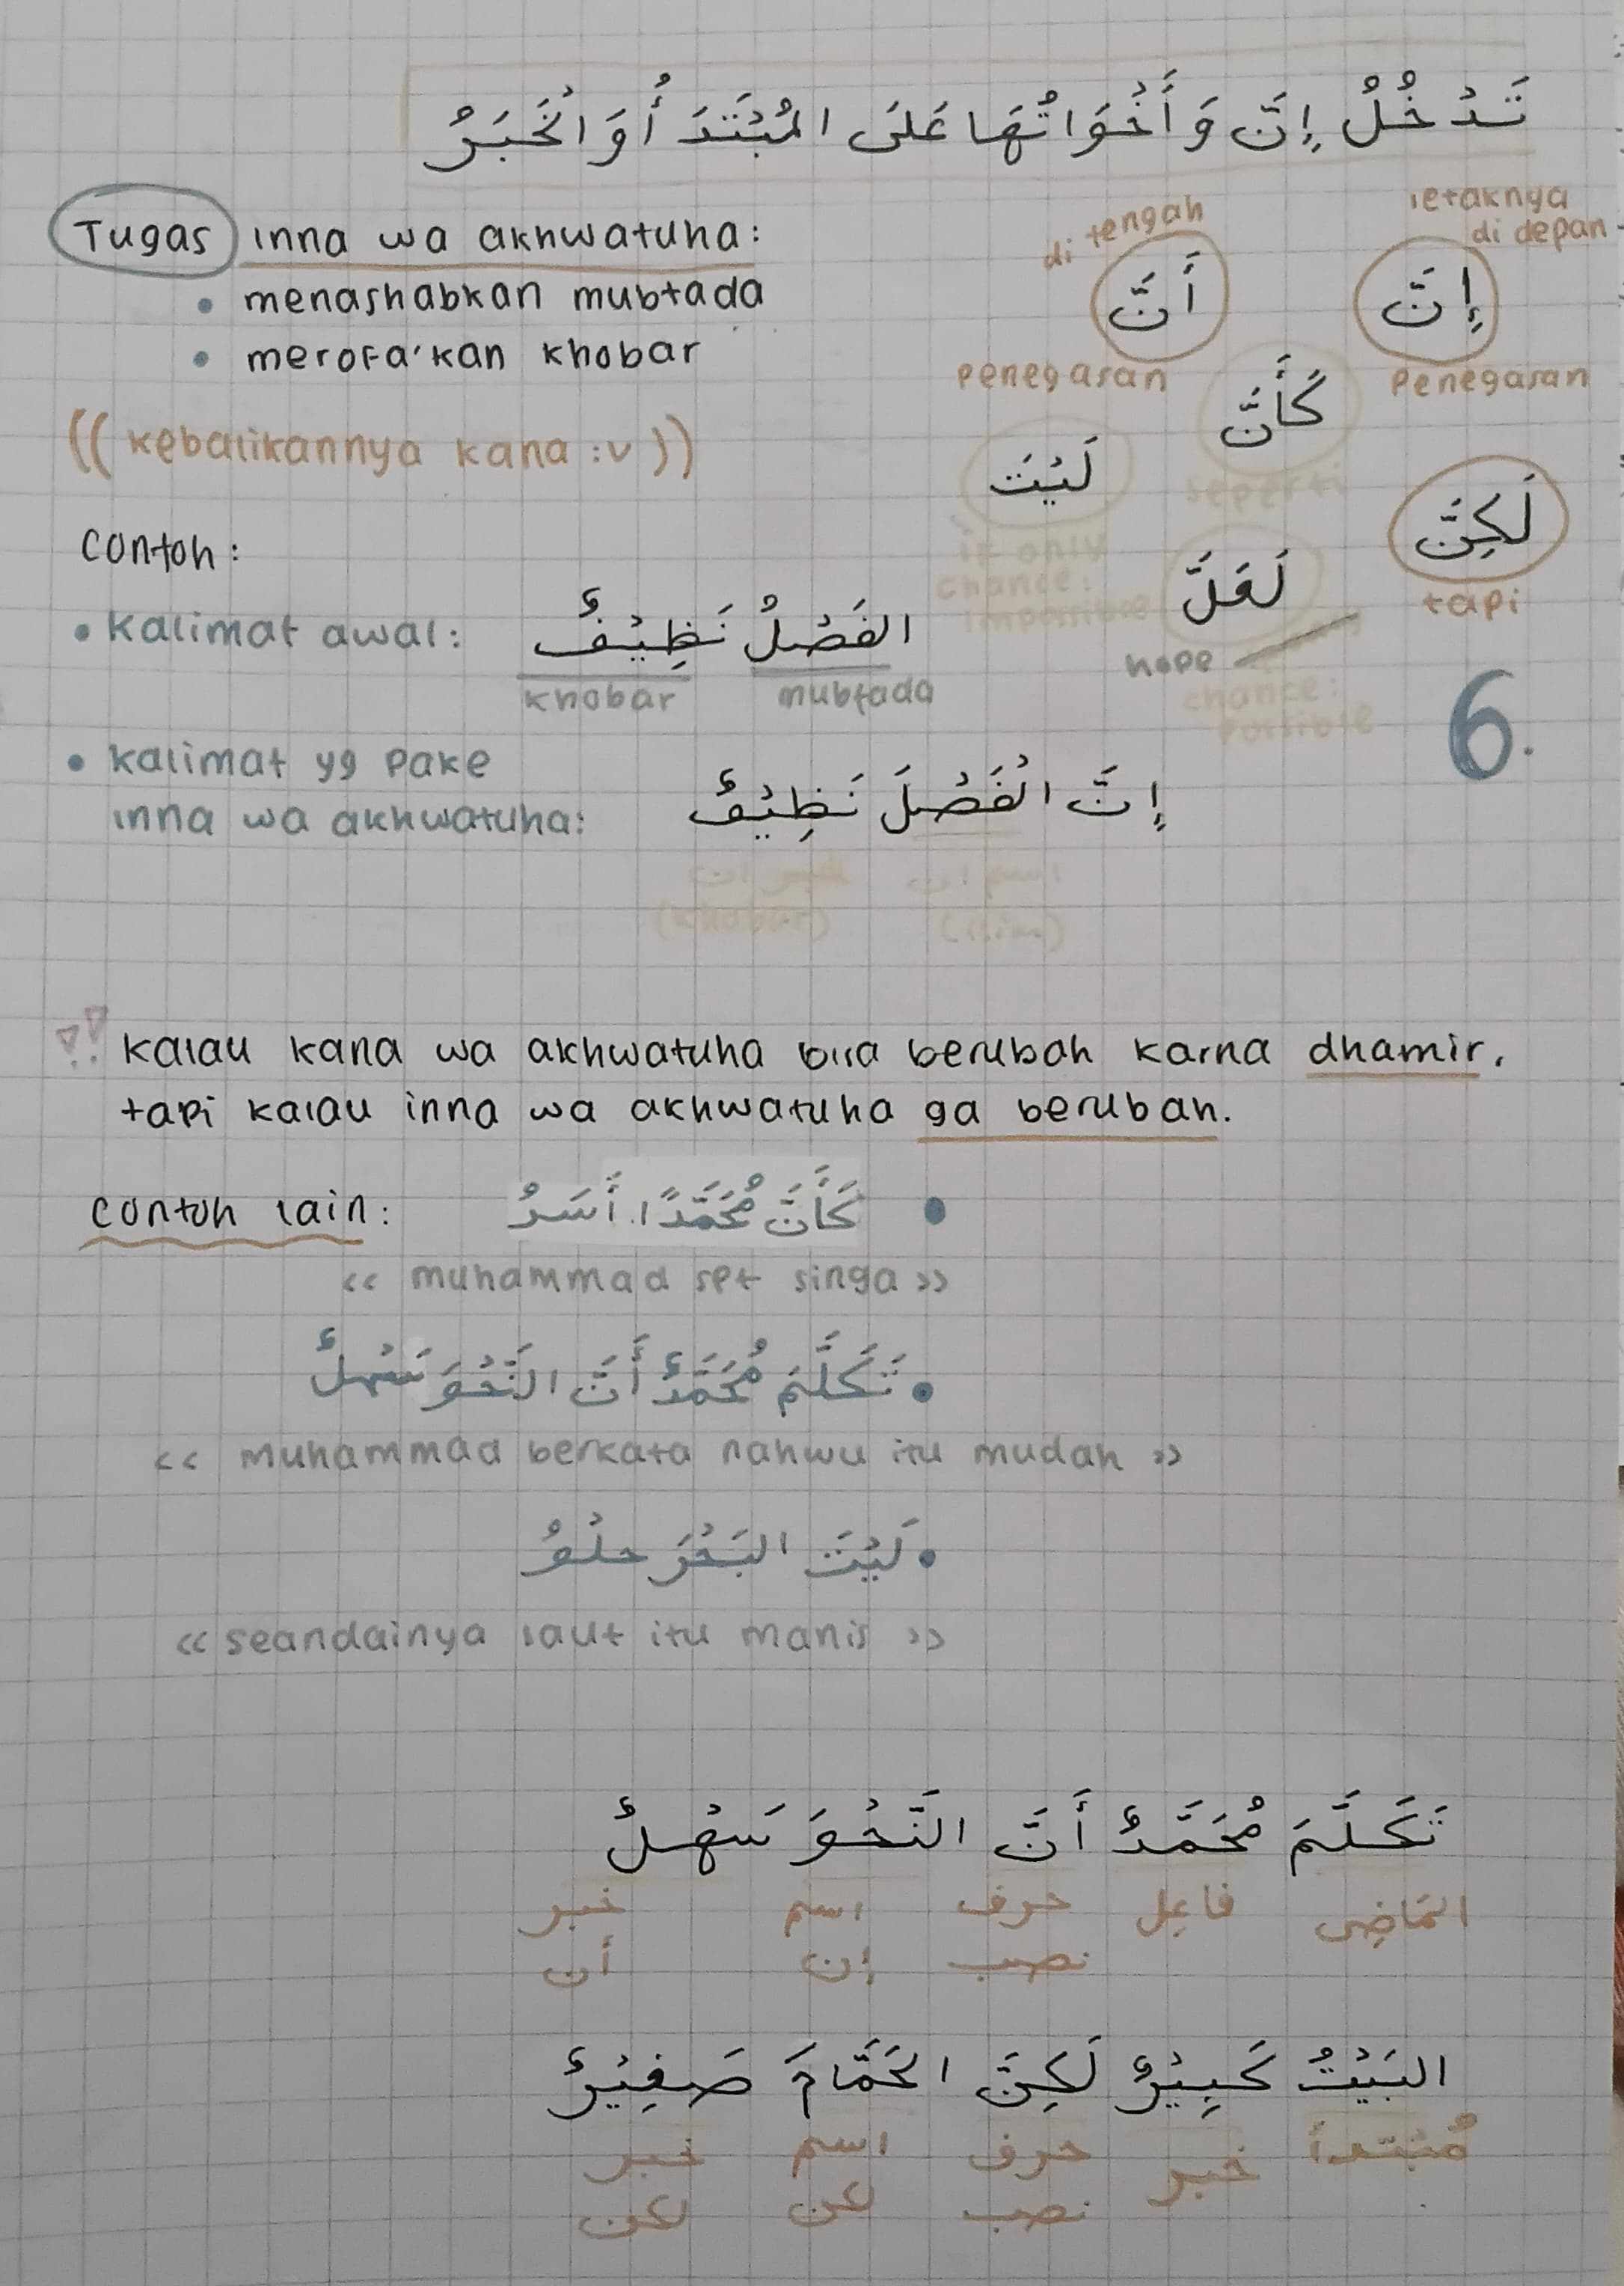 تَدْخُلُ إِنَّ وَأَخَوَاتُهَا عَلَى المُبْتَدَأُ وَالْخَبَرُ
Tugas inna wa akhwatuha:
• menashabkan mubtada
• merofa'kan khobar
(( kebalikannya kana :v ))
letaknya di depan
إِنَّ
penegasan
di tengah
أَنَّ
penegasan
كَأَنَّ
seperti
لَيْتَ
if only
chance:
impossible
لَكِنَّ
tapi
لَعَلَّ
hope
chance:
possible
6.
contoh:
• kalimat awal: الفَصْلُ نَظِيْفٌ
khobar mubtada
• kalimat yg pake
inna wa akhwatuha: إِنَّ الْفَصْلَ نَظِيْفٌ
اسم ان خبر ان
(isim) (khobar)
!! kalau kana wa akhwatuha bisa berubah karna dhamir.
tapi kalau inna wa akhwatuha ga berubah.
contoh lain: • كَأَنَّ مُحَمَّدًا أَسَدُ
<< muhammad spt singa >>
• تَكَلَّمَ مُحَمَّدٌ أَنَّ النَّحْوَ سَهْلٌ
<< muhammad berkata nahwu itu mudah >>
• لَيْتَ البَحْرَ حلْوُ
<< seandainya laut itu manis >>
تَكَلَّمَ مُحَمَّدٌ أَنَّ النَّحْوَ سَهْلٌ
المَاضِى فاعِل حرف اسم خبر
نصب إن أن
البَيْتُ كَبِيْرٌ لَكِنَّ الحَمَّامَ صَغِيْرٌ
مُبْتَدأ خبر حرف اسم خبر
نصب لكن لكن